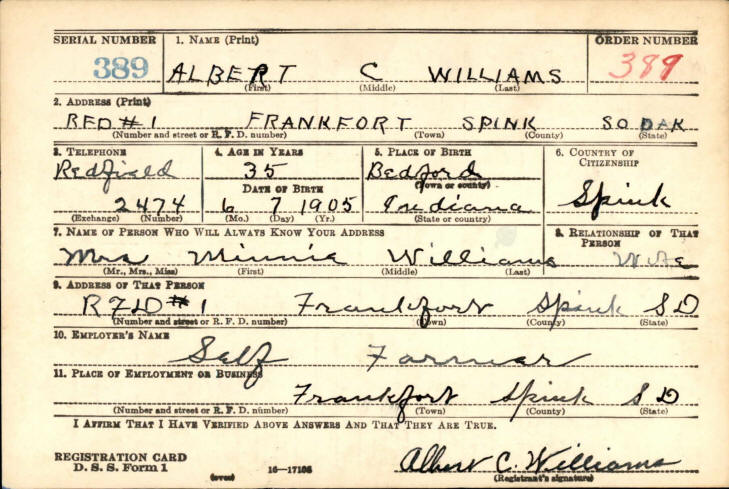 SERIAL NUMBER 1. NAME (Print) ORDER NUMBER
389 ALBERT C WILLIAMS 389
(First) (Middle) (Last)
2. ADDRESS (Print)
RFD #1 FRANKFORT SPINK SO DAK
(Number and street or R. F. D. number) (Town) (County) (State)
3. TELEPHONE 4. AGE IN YEARS 5. PLACE OF BIRTH 6. COUNTRY OF CITIZENSHIP
Redfield 35 Bedford
(Town or county)
DATE OF BIRTH Spink
2474 6 7 1905 Indiana
(Exchange) (Number) (Mo.) (Day) (Yr.) (State or country)
7. NAME OF PERSON WHO WILL ALWAYS KNOW YOUR ADDRESS 8. RELATIONSHIP OF THAT PERSON
Mrs Minnie Williams Wife
(Mr., Mrs., Miss) (First) (Middle) (Last)
9. ADDRESS OF THAT PERSON
RFD #1 Frankfort Spink S D
(Number and street or R. F. D. number) (Town) (County) (State)
10. EMPLOYER'S NAME
Self Farmer
11. PLACE OF EMPLOYMENT OR BUSINESS
Frankfort Spink S D
(Number and street or R. F. D. number) (Town) (County) (State)
I AFFIRM THAT I HAVE VERIFIED ABOVE ANSWERS AND THAT THEY ARE TRUE.
REGISTRATION CARD
D. S. S. Form 1 (over) 16—17105 Albert C. Williams
(Registrant's signature)